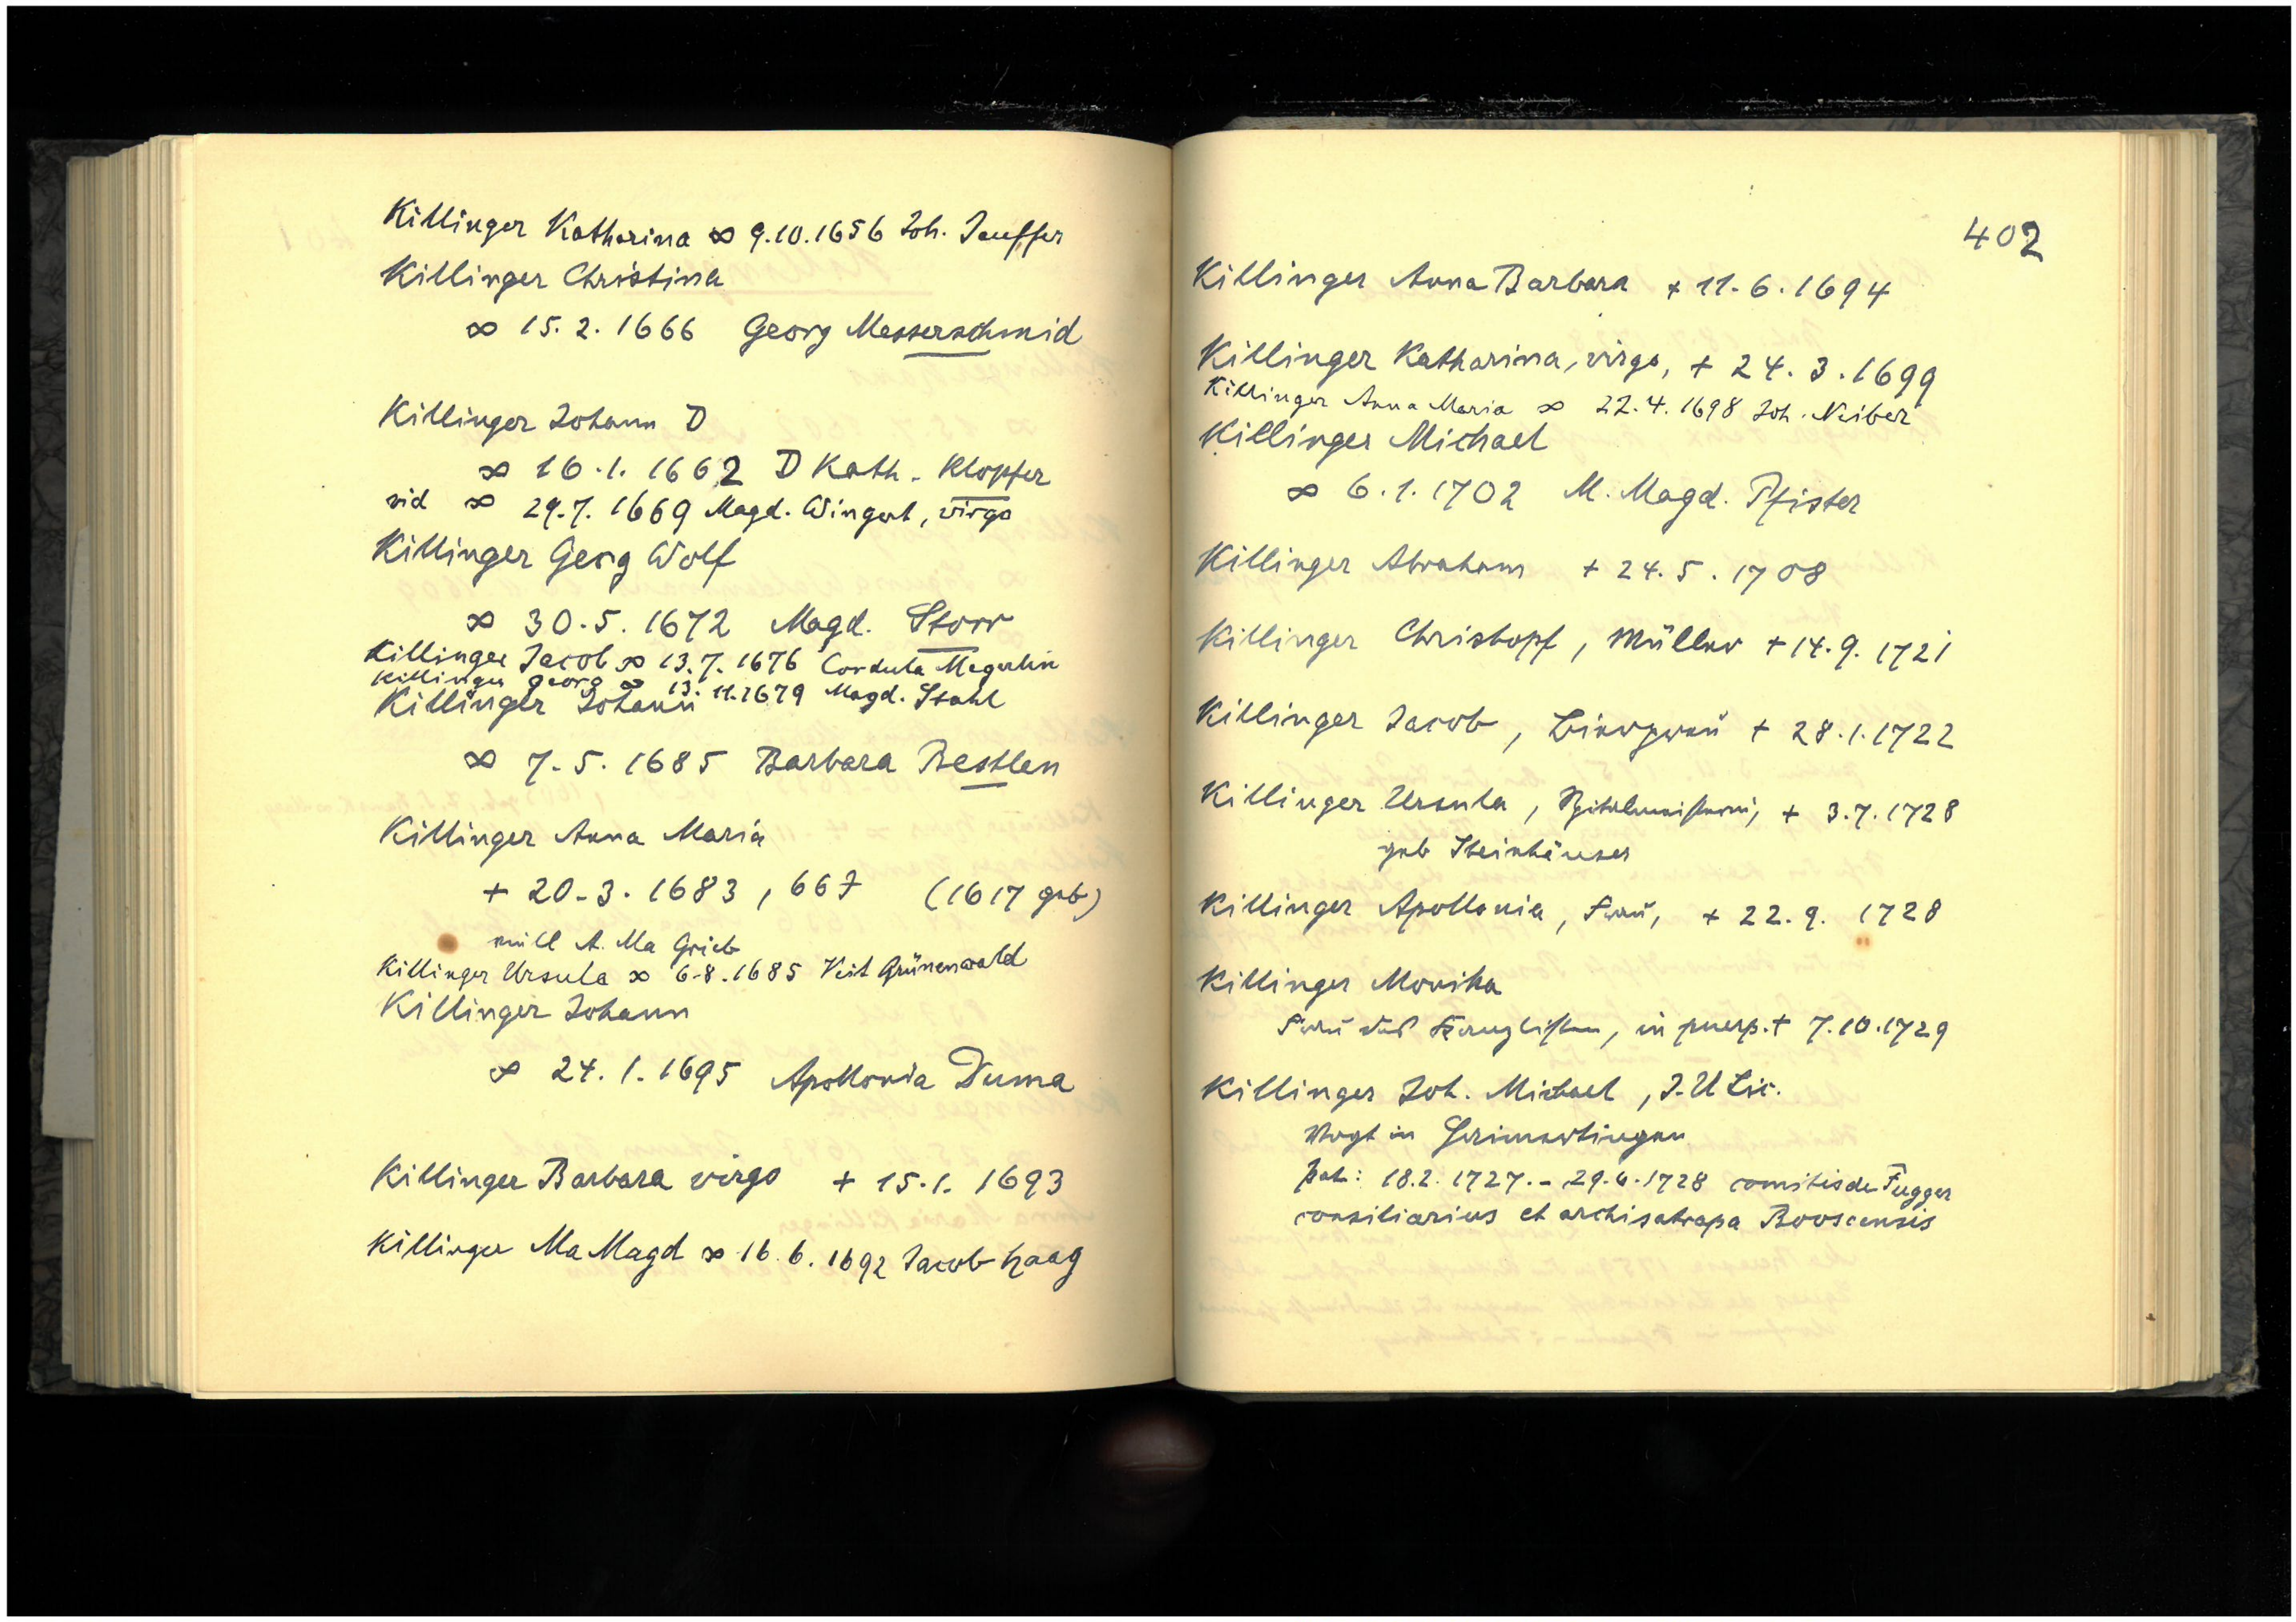 Killinger Katharina ∞ 9.10.1656 Joh. Jeuffer
Killinger Christina
∞ 15. 2. 1666 Georg Messerschmid
Killinger Johann D
∞ 16. 1. 1662 D Kath. Klopfer
vid ∞ 29.7. 1669 Magd. Wingert, virgo
Killinger Georg Wolf
∞ 30. 5. 1672 Magd. Storr
Killinger Jacob ∞ 13. 7. 1676 Cordula Megerlin
Killinger Georg ∞ 13. 11. 1679 Magd. Stahl
Killinger Johann
∞ 7. 5. 1685 Barbara Bestlen
Killinger Anna Maria
+ 20. 3. 1683, 66J (1617 geb)
A. Ma Grieb
Killinger Ursula ∞ 6.8.1685 Veit Grünenwald
Killinger Johann
∞ 24. 1. 1695 Apollonia Duma
Killinger Barbara virgo + 15. 1. 1693
Killinger Ma Magd ∞ 16. 6. 1692 Jacob Haag
402
Killinger Anna Barbara + 11. 6. 1694
Killinger Katharina, virgo, + 24. 3. 1699
Killinger Anna Maria ∞ 22. 4. 1698 Joh. Neiber
Killinger Michael
∞ 6. 1. 1702 M. Magd. Pfister
Killinger Abraham + 24. 5. 1708
Killinger Christopf, Müller + 14. 9. 1721
Killinger Jacob, + 28. 1. 1722
Killinger Ursula, Spitalmeisterin, + 3. 7. 1728
geb Steinhäuser
Killinger Apollonia, Frau, + 22. 9. 1728
Killinger Monika
Frau des Kanzlisten, in puerp. + 7. 10. 1729
Killinger Joh. Michael, J. U Lic.
Vogt in Heimertingen
Pat: 18.2. 1727. - 29. 6. 1728 comitis de Fugger
consiliarius et archisatrapa Boosensis